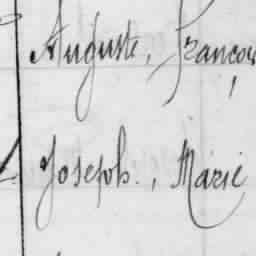 Auguste, Françow
Joseph., Marie